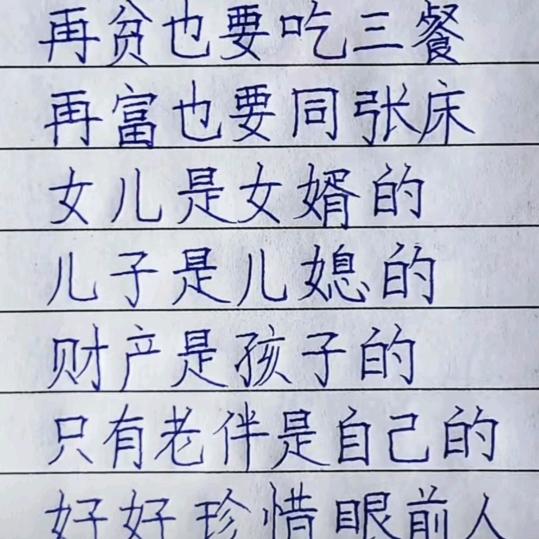 再贫也要吃三餐
再富也要同张床
女儿是女婿的
儿子是儿媳的
财产是孩子的
只有老伴是自己的
好好珍惜眼前人